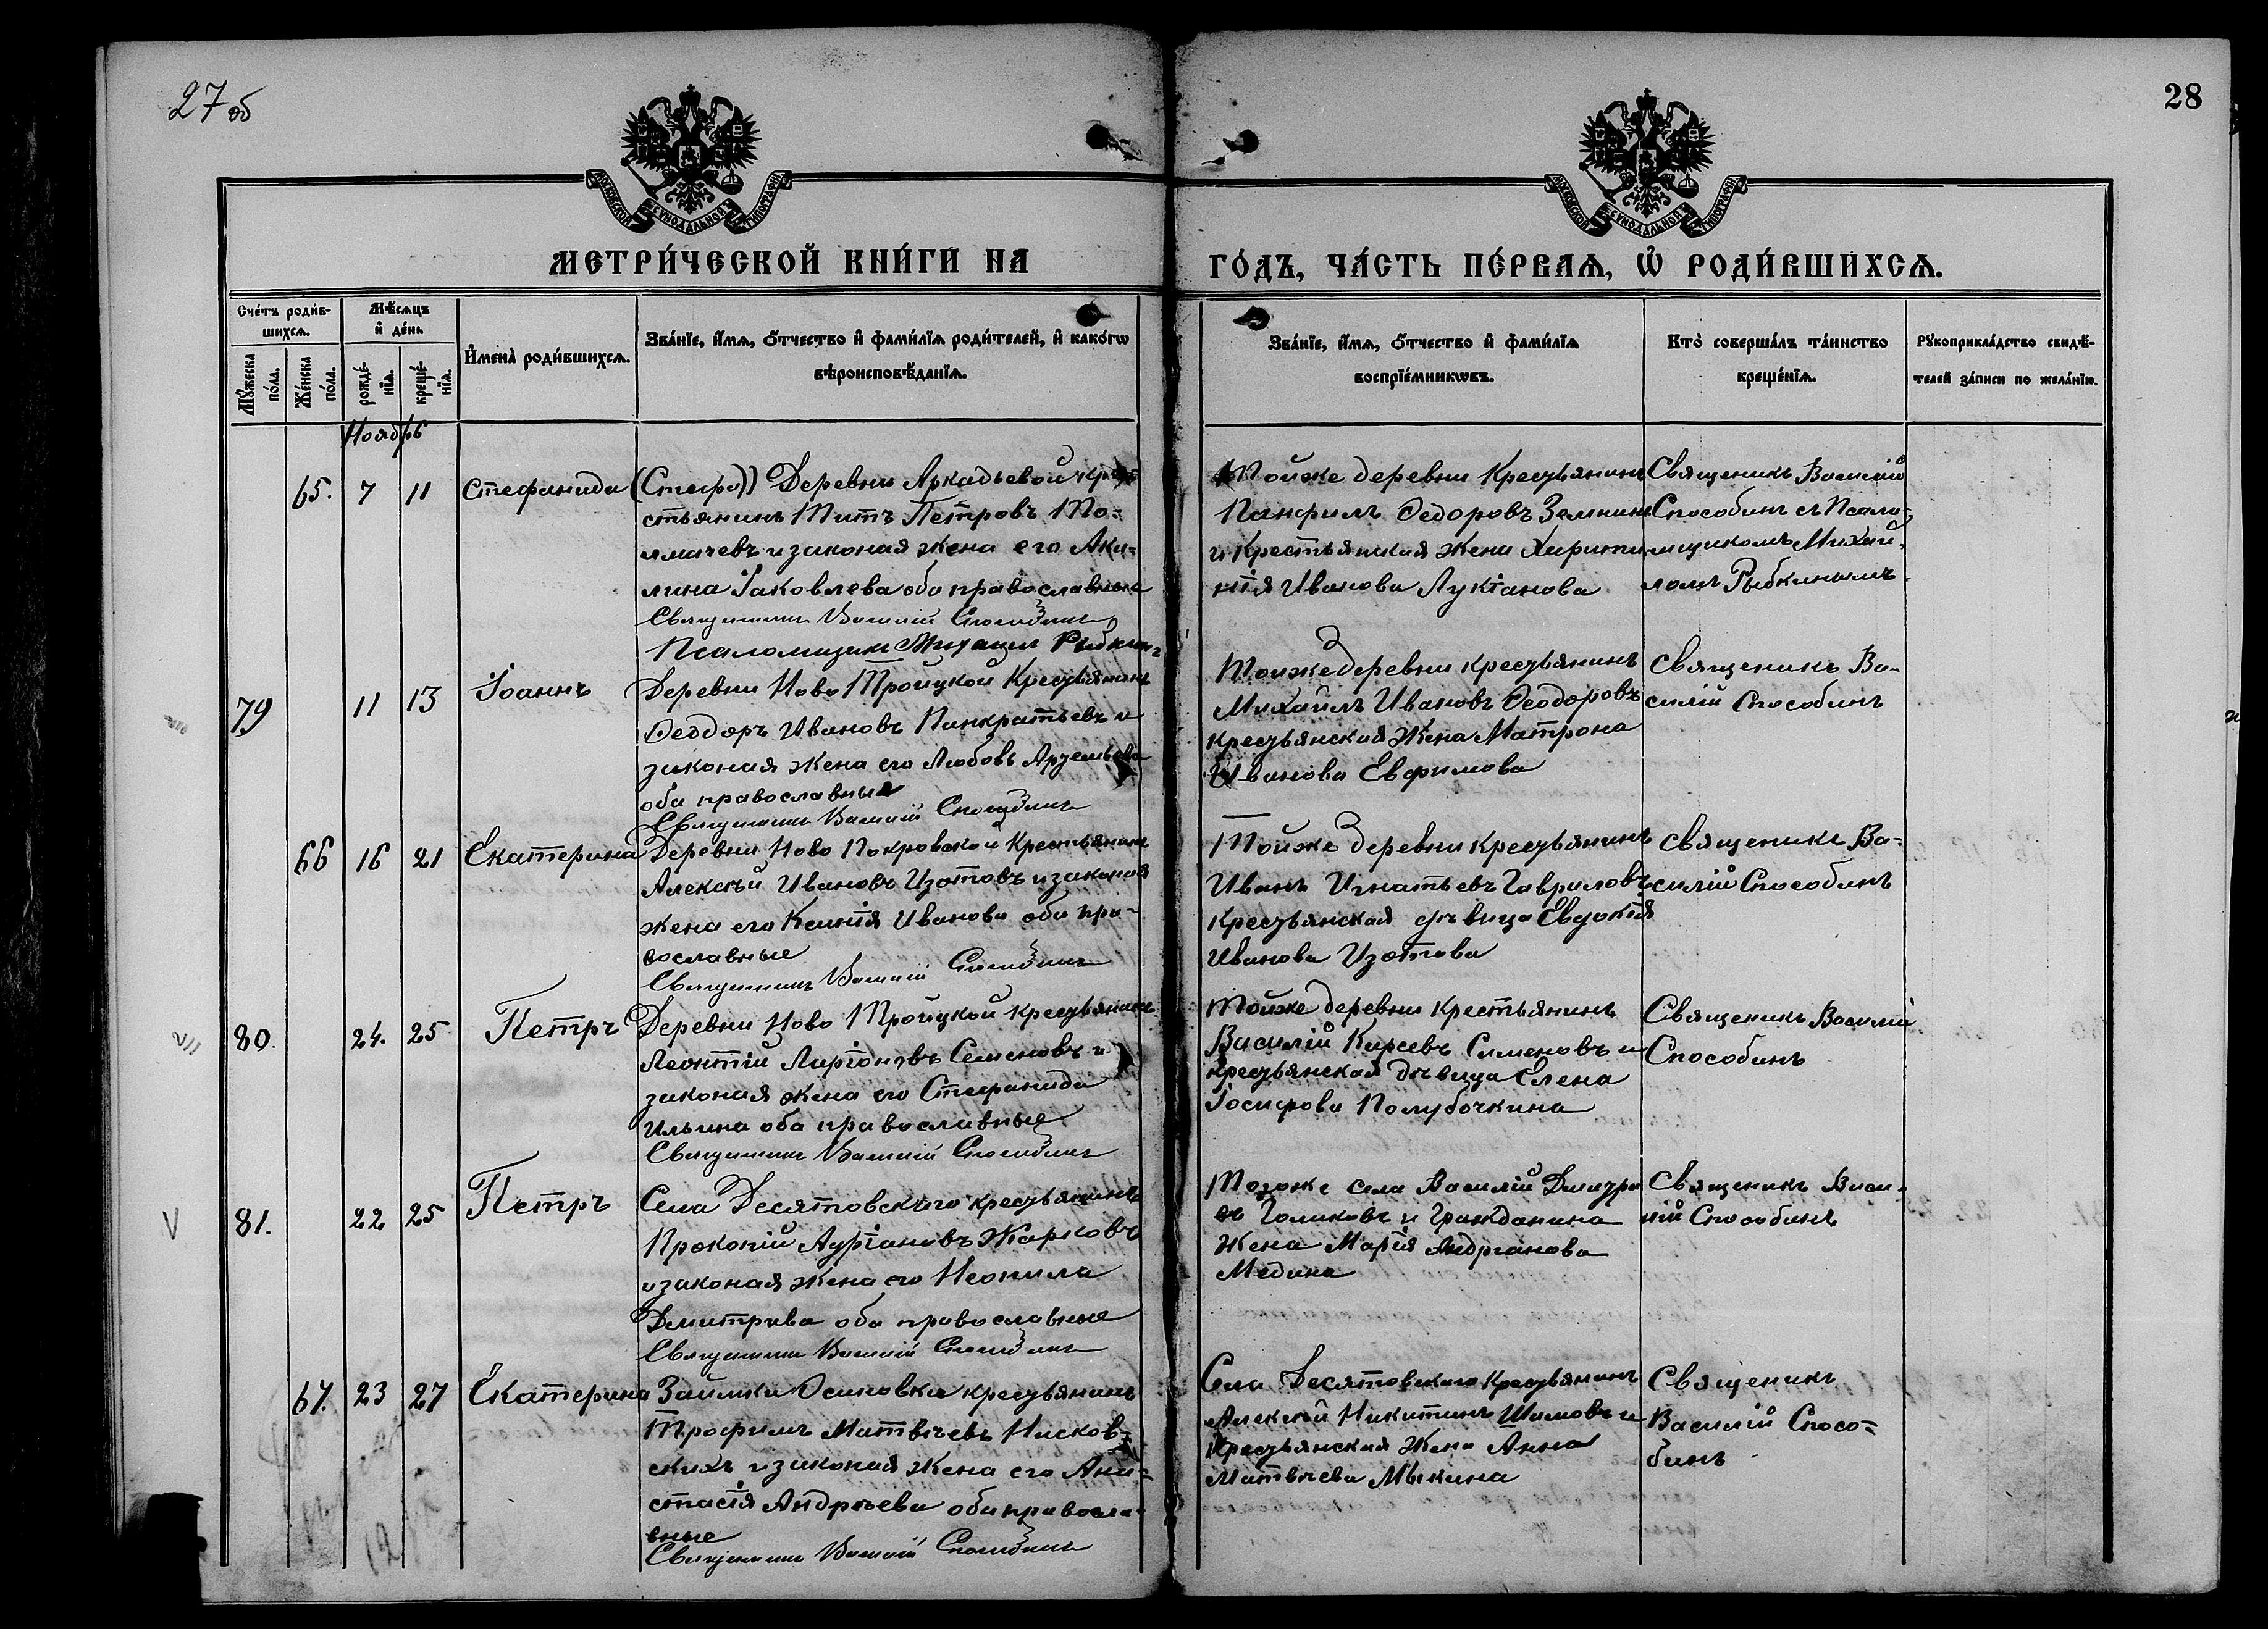 27 об
28
МОСКОВСКОЙ СѴНОДАЛЬНОЙ ТИПОГРАФІИ
МОСКОВСКОЙ СѴНОДАЛЬНОЙ ТИПОГРАФІИ
МЕТРИ́ЧЕСКОЙ КНИ́ГИ НА
ГО́ДЪ, ЧА́СТЬ ПЕ́РВАѦ, Ѡ҆ РОДИ́ВШИХСѦ.
Сче́тъ роди́в-
шихсѧ.
Мꙋ́жеска
по́ла.
Же́нска
по́ла.
Мѣ́сѧцъ
и҆ де́нь
рожде́-
нїѧ.
креще́-
нїѧ.
И҆мена̀ роди́вшихсѧ.
Зва́нїе, и҆́мѧ, ѻ҆́тчество и҆ фами́лїѧ роди́телей, и҆ како́гѡ
вѣроисповѣ́данїѧ.
Зва́нїе, и҆́мѧ, ѻ҆́тчество и҆ фами́лїѧ
воспрїе́мникѡвъ.
Кто̀ соверша́лъ та́инство
креще́нїѧ.
Рꙋкоприкла́дство свидѣ́-
телей за́писи по жела́нїю.
Ноябрь
65. 7 11 Стефанида
Деревни Аркадьевой кре
стьянинъ Титъ Петровъ То-
лмачевъ и законая жена его Аки-
лина Іаковлева оба православные
Священникъ Василій Способинъ
Псаломщикъ Михаилъ Рыбкинъ
Тойже деревни Крестьянинъ
Панфилъ Ѳедоровъ Земнинъ
и Крестьянская жена Харити
нія Иванова Лукіанова
Священикъ Василій
Способинъ съ Псало-
мщикомъ Михаи-
ломъ Рыбкинымъ
79 11 13 Іоаннъ
Деревни Ново Тройцкой Крестьянинъ
Ѳеодоръ Ивановъ Панкратьевъ и
законая жена его Любовь Артемьева
оба православныя
Священникъ Василій Способинъ
Тойже деревни крестьянинъ
Михаилъ Ивановъ Ѳеодоровъ
крестьянская Жена Матрона
Иванова Евфимова
Священикъ Ва-
силій Способинъ
66 16 21 Екатерина
Деревни Ново Покровской Крестьянинъ
Алексѣй Ивановъ Изотовъ и законая
жена его Ксенія Иванова оба пра-
вославные
Священникъ Василій Способинъ
Тойже деревни крестьянинъ
Иванъ Игнатьевъ Гавриловъ
крестьянская дѣвица Евдокія
Иванова Изотова
священикъ Ва-
силій Способинъ
80. 24. 25 Петръ
Деревни Ново Тройцкой крестьянинъ
Леонтій Ларіоновъ Семеновъ и
законая жена его Стефанида
Ильина оба православные
Священникъ Василій Способинъ
Тойже деревни крестьянинъ
Василій Карсевъ Сименовъ и
крестьянская дѣвица Елена
Іосифова Полубочкина
Священикъ Василій
Способинъ
V 81. 22 25 Петръ
Села Десятовскаго крестьянинъ
Прокопій Жарковъ
и законая жена его Неонила
Дмитрева оба православные
Священникъ Василій Способинъ
Тогоже села Василій Дмитри
въ Голиковъ и Гражданина
Жена Марія Андріанова
Медина
Священикъ Васи-
лій Способинъ
67. 23 27 Екатерина
Заимки Осиновка крестьянинъ
Трофимъ Матвѣевъ Нисков-
скихъ и законая жена его Ана-
стасія Андрѣева оба правосла-
вные
Священникъ Василій Способинъ
Села Десятовскаго Крестьянинъ
Алексѣй Никитинъ Шамовъ и
крестьянская Жена Анна
Матвѣева Мыкина
Священикъ
Василій Спосо-
бинъ